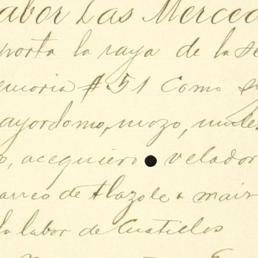 abor Las Merced
porta la raya de la se
emoria #51 Como s
ayordomo, mozo, mule
o, acequiero velador
arreo de tlazole a maiz
la labor de Custillos